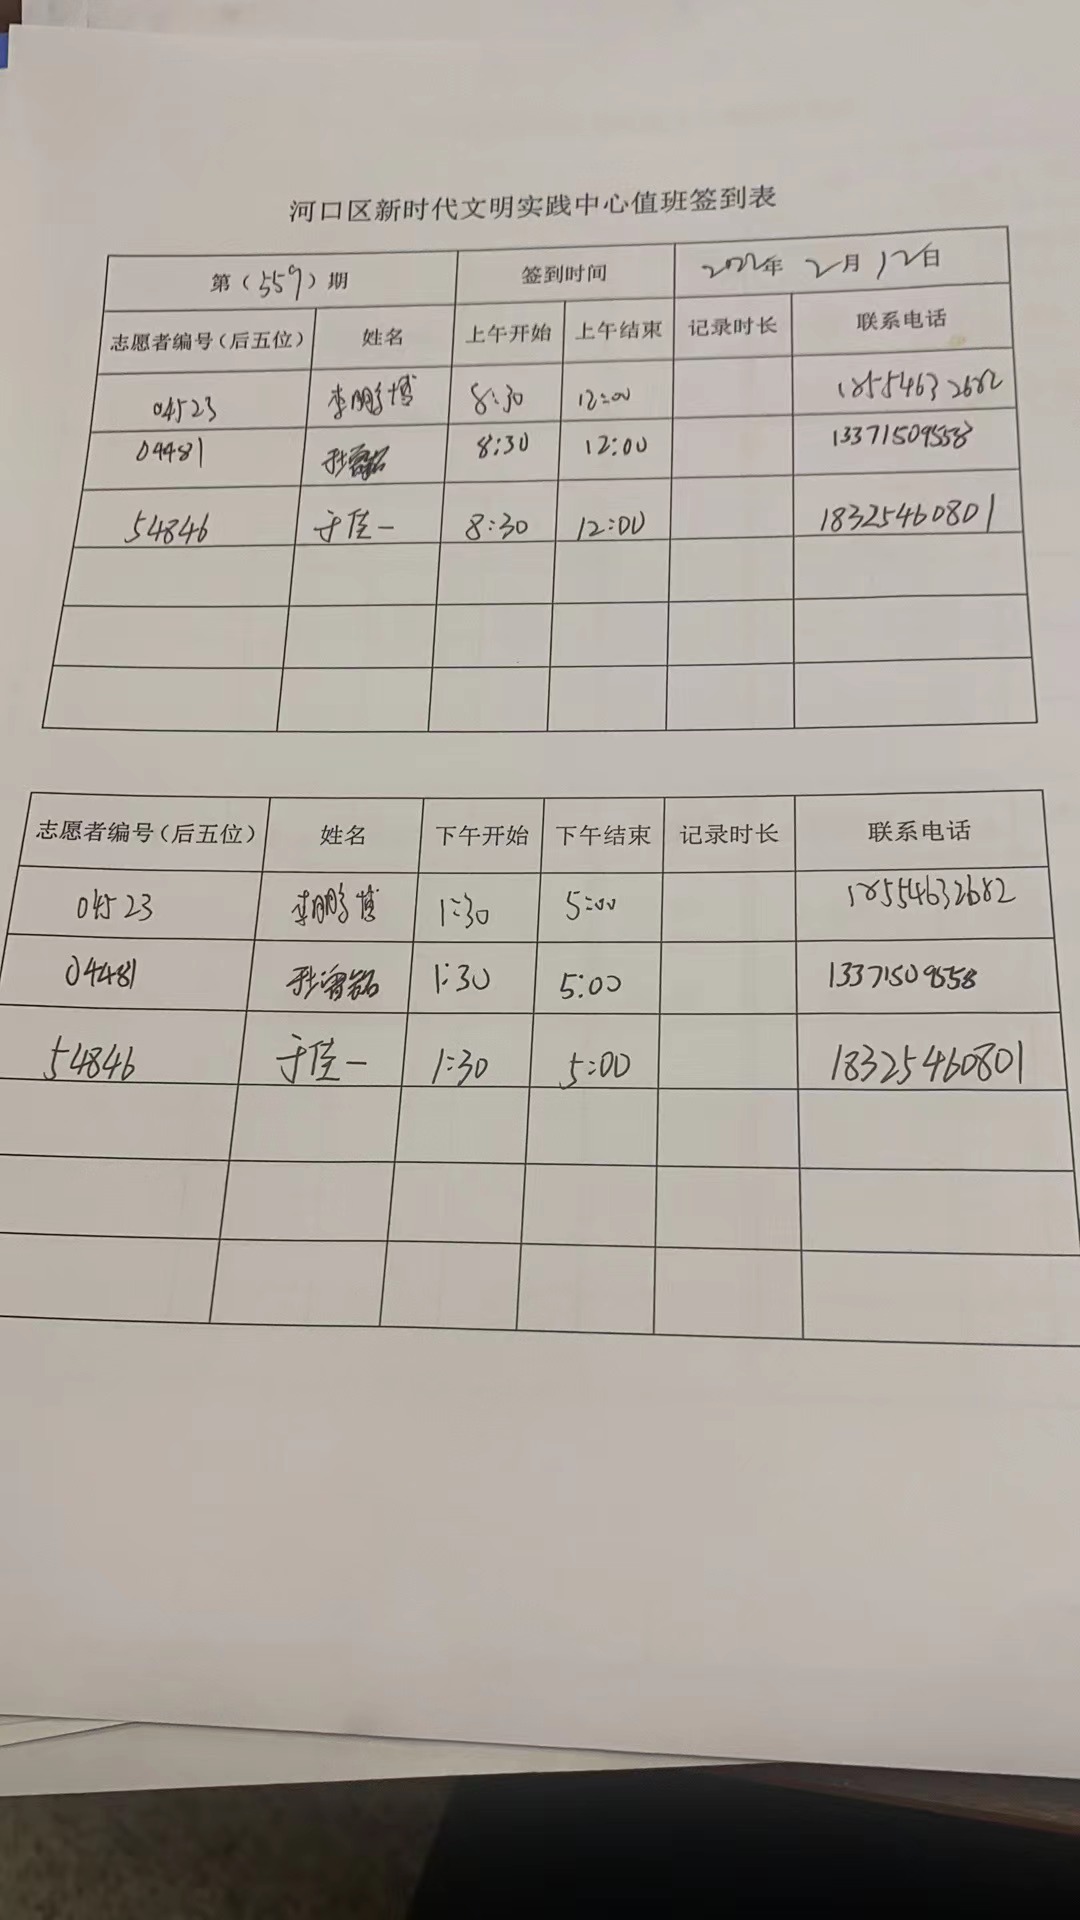 河口区新时代文明实践中心值班签到表
第（559）期 签到时间 2022年 2月 12日
志愿者编号（后五位） 姓名 上午开始 上午结束 记录时长 联系电话
04523 李鹏博 8:30 12:00 18554632682
04481 8:30 12:00 13371509558
54846 于佳一 8:30 12:00 18325460801
志愿者编号（后五位） 姓名 下午开始 下午结束 记录时长 联系电话
04523 李鹏博 1:30 5:00 18554632682
04481 1:30 5:00 13371509558
54846 于佳一 1:30 5:00 18325460801